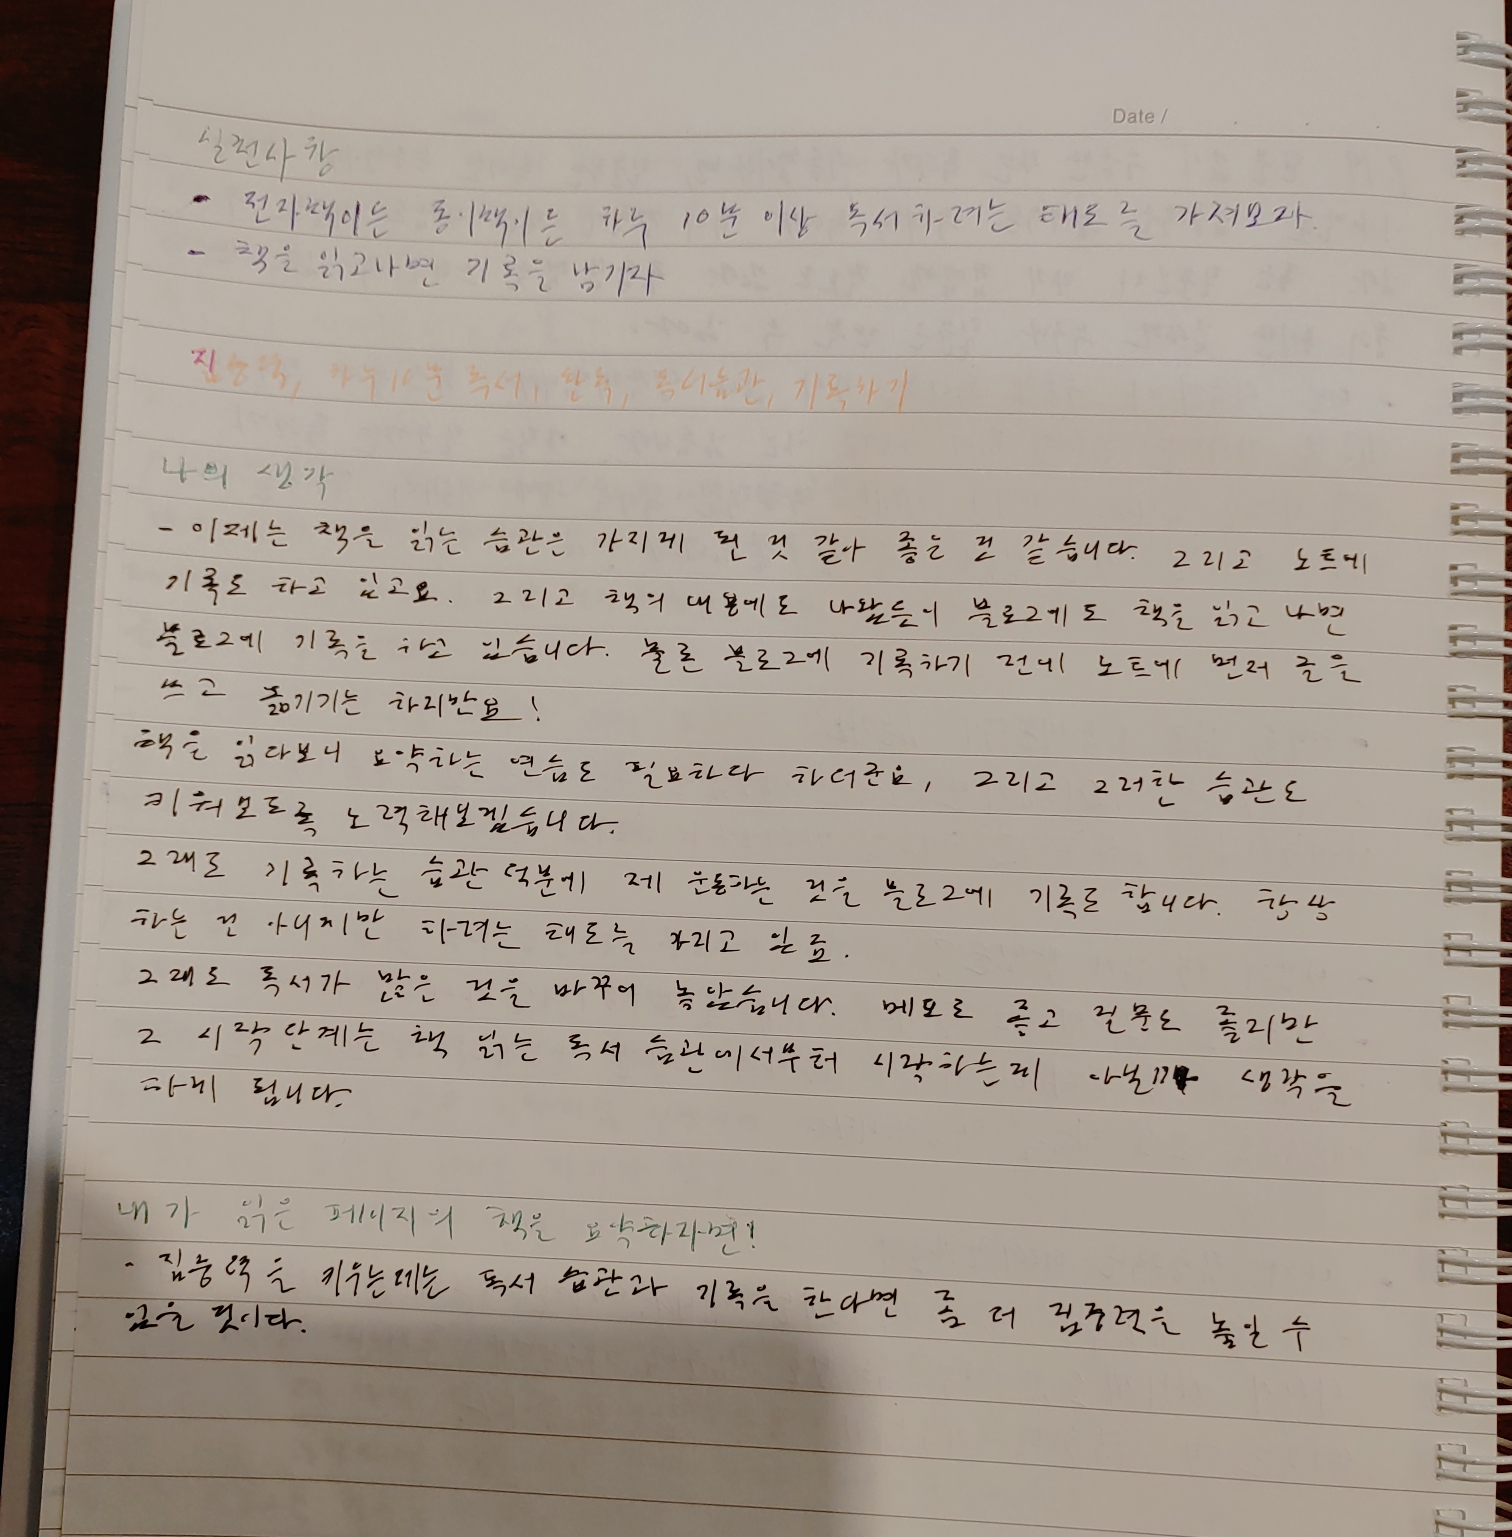 Date /
실천사항
- 전자책이든 종이책이든 하루 10분 이상 독서하려는 태도를 가져보자.
- 책을 읽고나면 기록을 남기자
집중력, 하루 10분 독서, 완독, 독서습관, 기록하기
나의 생각
- 이제는 책을 읽는 습관은 가지게 된 것 같아 좋은 것 같습니다. 그리고 노트에
기록도 하고 있고요. 그리고 책의 내용에도 나왔듯이 블로그에도 책을 읽고 나면
블로그에 기록을 하고 있습니다. 물론 블로그에 기록하기 전에 노트에 먼저 글을
쓰고 옮기기는 하지만요!
책을 읽다보니 요약하는 연습도 필요하다 하더군요, 그리고 그러한 습관도
키워보도록 노력해보겠습니다.
그래도 기록하는 습관 덕분에 제 운동하는 것을 블로그에 기록도 합니다. 항상
하는 건 아니지만 하려는 태도를 가지고 있죠.
그래도 독서가 많은 것을 바꾸어 놓았습니다. 메모도 좋고 질문도 좋지만
그 시작단계는 책 읽는 독서 습관에서부터 시작하는게 아닐까 생각을
하게 됩니다.
내가 읽은 페이지의 책을 요약하자면!
- 집중력을 키우는데는 독서 습관과 기록을 한다면 좀 더 집중력을 높일 수
있을 것이다.